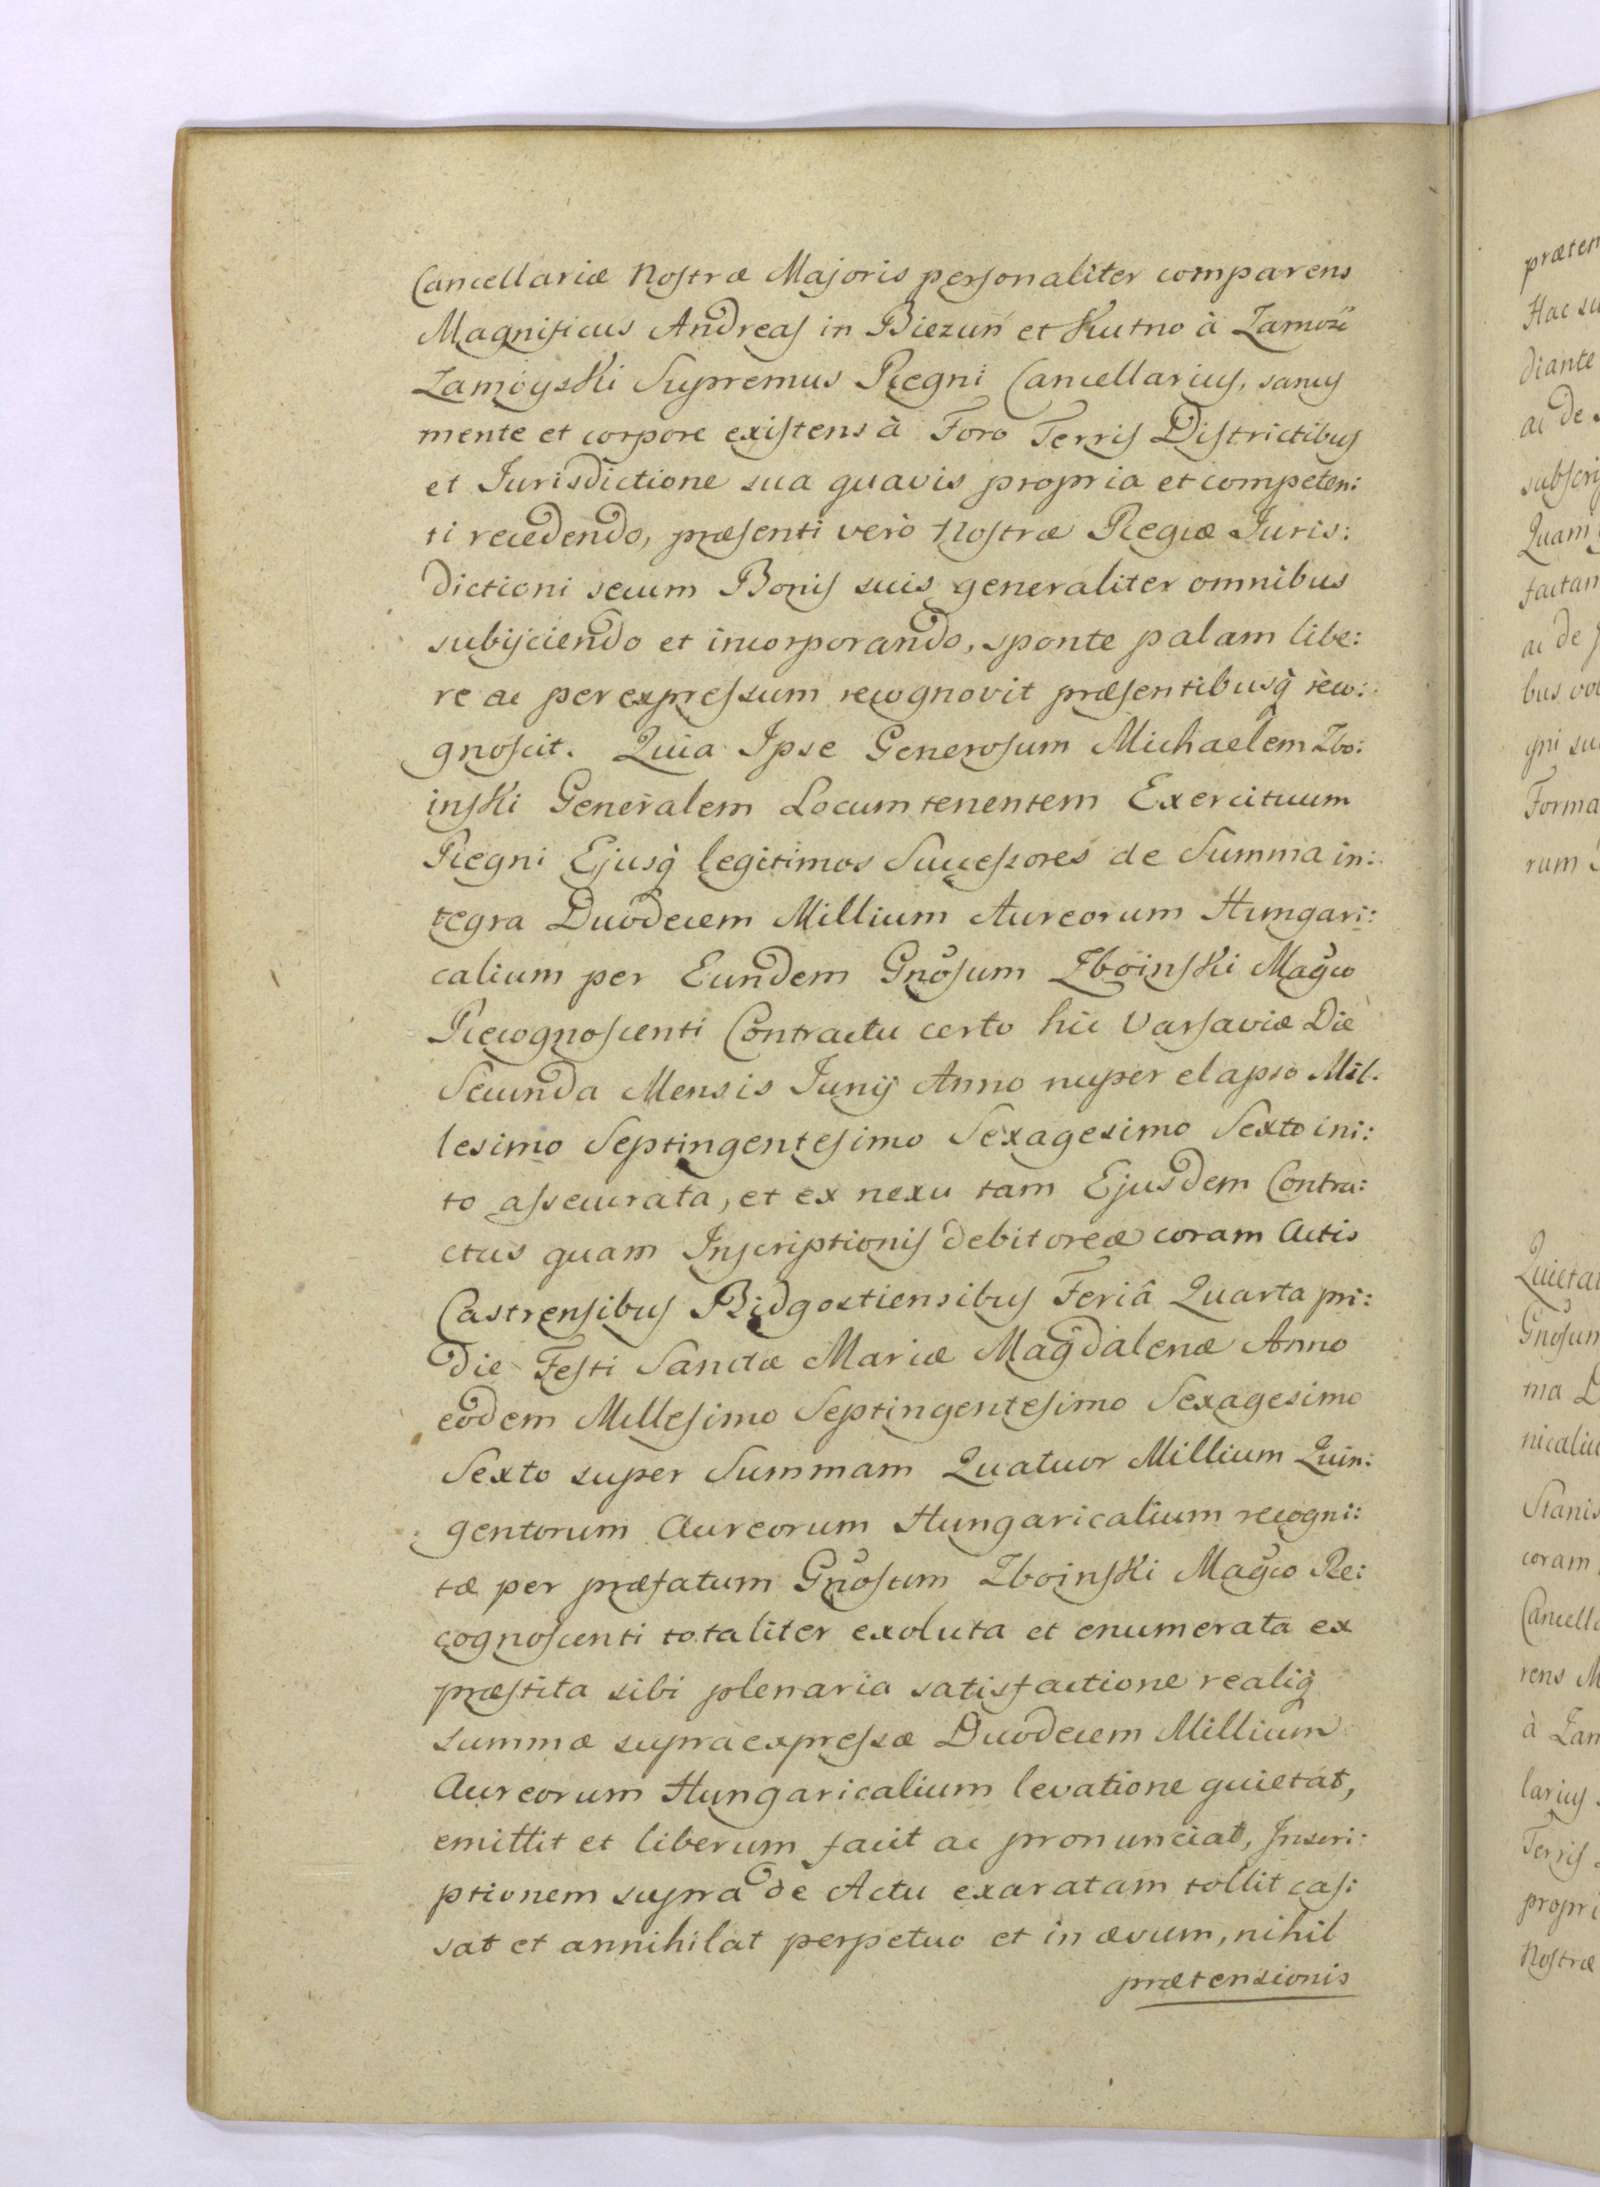 Cancellariæ Nostræ Majoris personaliter comparens
Magnificus Andreas in Biezuń et Kutno à Zamoście
Zamoyski Supremus Regni Cancellarius, sanus
mente et corpore existens à Foro Terris Districtibus
et Jurisdictione sua quavis propria et competen:
ti recedendo, præsenti verò Nostræ Regiæ Juris:
dictioni secum Bonis suis generaliter omnibus
subijciendo et incorporando, sponte palam libe:
re ac per expressum recognovit præsentibusq̀ reco:
gnoscit. Quia Ipse Generosum Michaelem Zbo:
inski Generalem Locumtenentem Exercituum
Regni Ejusq̀ legitimos Successores de Summa in:
tegra Duodecem Millium Aureorum Hungari:
calium per Eundem Gnõsum Zboinski Magco
Recognoscenti Contractu certo hic Varsaviæ Die
Secunda Mensis Junij Anno nuper elapso Mil.
lesimo Septingentesimo Sexagesimo Sexto ini:
to assecurata, et ex nexu tam Ejusdem Contra:
ctus quam Inscriptionis debitoreæ coram Actis
Castrensibus Bidgostiensibus Feriâ Quarta pri:
die Festi Sanctæ Mariæ Magdalenæ Anno
eodem Millesimo Septingentesimo Sexagesimo
Sexto super Summam Quatuor Millium Quin:
gentorum Aureorum Hungaricalium recogni:
tæ per præfatum Gnõsum Zboinski Magco Re:
cognoscenti totaliter exoluta et enumerata ex
præstita sibi plenaria satisfactione realiq̀
Summæ supraexpressæ Duodecem Millium
Aureorum Hungaricalium levatione quietat,
emittit et liberum facit ac pronunciat, Inscri:
ptionem supra de Actu exaratam tollit cas:
sat et annihilat perpetuo et in ævum, nihil
prætensionis
præten
Hac su
diante
ac de
subscri
Quam
factam
ac de
bus vo
gni su
Forma
rum
Quietat
Gnosum
ma D
nicaliu
Stanis
coram
Cancella
rens M
à Zam
larius
Terris
propri
Nostræ